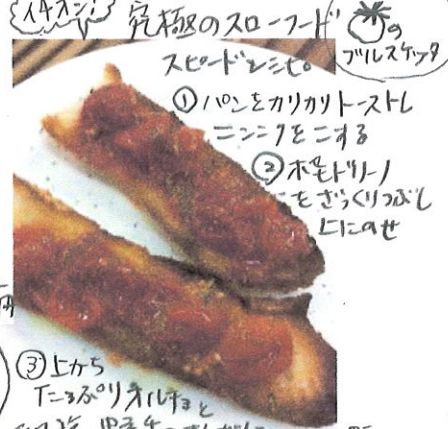 イチオシ!
究極のスローフード
スピードレシピ
の
ブルスケッタ
①パンをカリカリトーストし
ニンニクをこする
②ポモドリーノ
をざっくりつぶし
上にのせ
③上から
たっぷりオルチョと